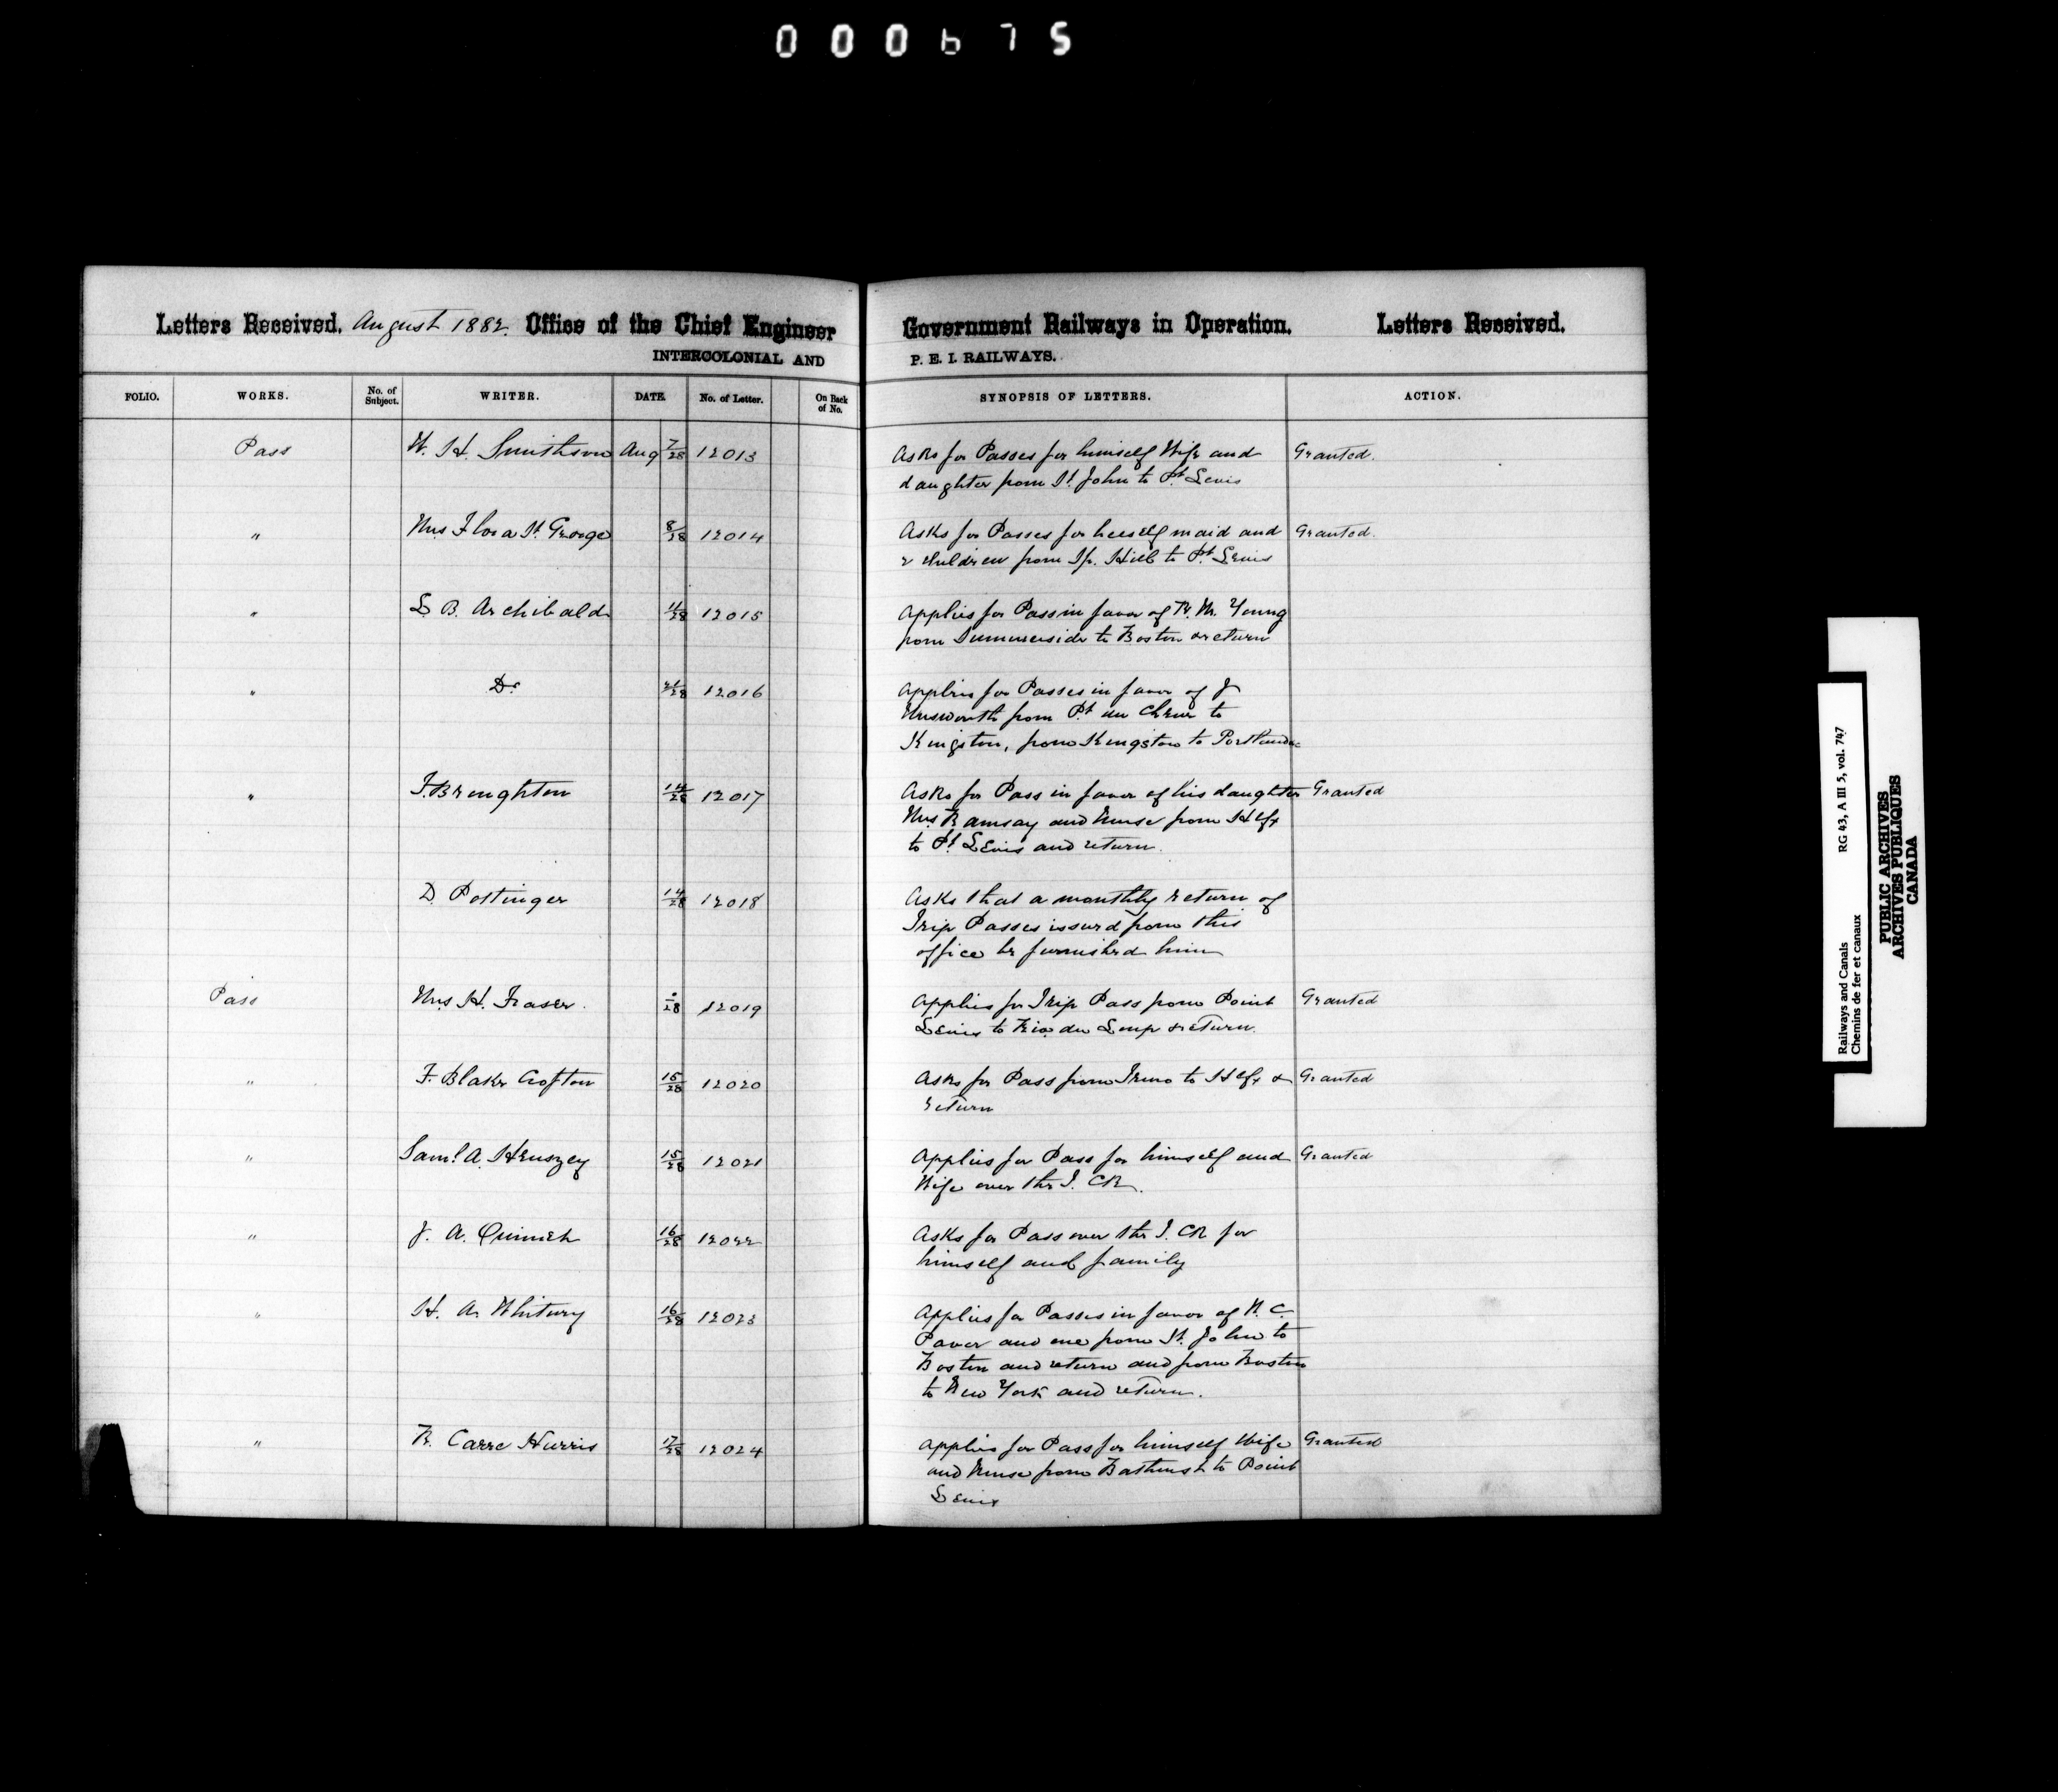 000675
Letters Received. August 1882. Office of the Chief Engineer Government Railways in Operation. Letters Received.
INTERCOLONIAL AND P. E. I. RAILWAYS.
FOLIO. WORKS. No. of Subject. WRITER. DATE. No. of Letter. On Back of No. SYNOPSIS OF LETTERS. ACTION.
Pass W. H. Smithson Aug 7/28 12013 Asks for Passes for himself Wife and Granted.
daughter from St. John to Pt. Levis
" Mrs Flora St. George 8/28 12014 Asks for Passes for herself maid and Granted.
2 children from Sp. Hill to Pt. Levis
" L. B. Archibald 11/28 12015 Applies for Pass in favor of Young
from Summerside to Boston & return
" Do 21/28 12016 Applies for Passes in favor of J
Unsworth from Pt. du Chene to
Kingston, from Kingston to Portland &c
" F. Broughton 14/28 12017 Asks for Pass in favor of his daughter Granted
Mrs Ramsay and Nurse from Hlfx
to Pt. Levis and return.
D. Pottinger 14/28 12018 Asks that a monthly return of
Trip Passes issued from this
office be furnished him
Pass Mrs H. Fraser. "/28 12019 Applies for Trip Pass from Point Granted
Levis to Riv. du Loup & return.
" F. Blake Crofton 15/28 12020 Asks for Pass from Truro to Hlfx & Granted
return
" Saml. A. Henszey 15/28 12021 Applies for Pass for himself and Granted
Wife over the I. C R.
" J. A. 16/28 12022 Asks for Pass over the I. CR for
himself and family
" H. A. Whitney 16/28 12023 Applies for Passes in favor of
and one from St. John to
Boston and return and from Boston
to New York and return.
" R. Carre Harris 17/28 12024 Applies for Pass for himself Wife Granted
and Nurse from Bathurst to Point
Levis
Railways and Canals RG 43, A III 5, vol. 747
Chemins de fer et canaux
PUBLIC ARCHIVES
ARCHIVES PUBLIQUES
CANADA